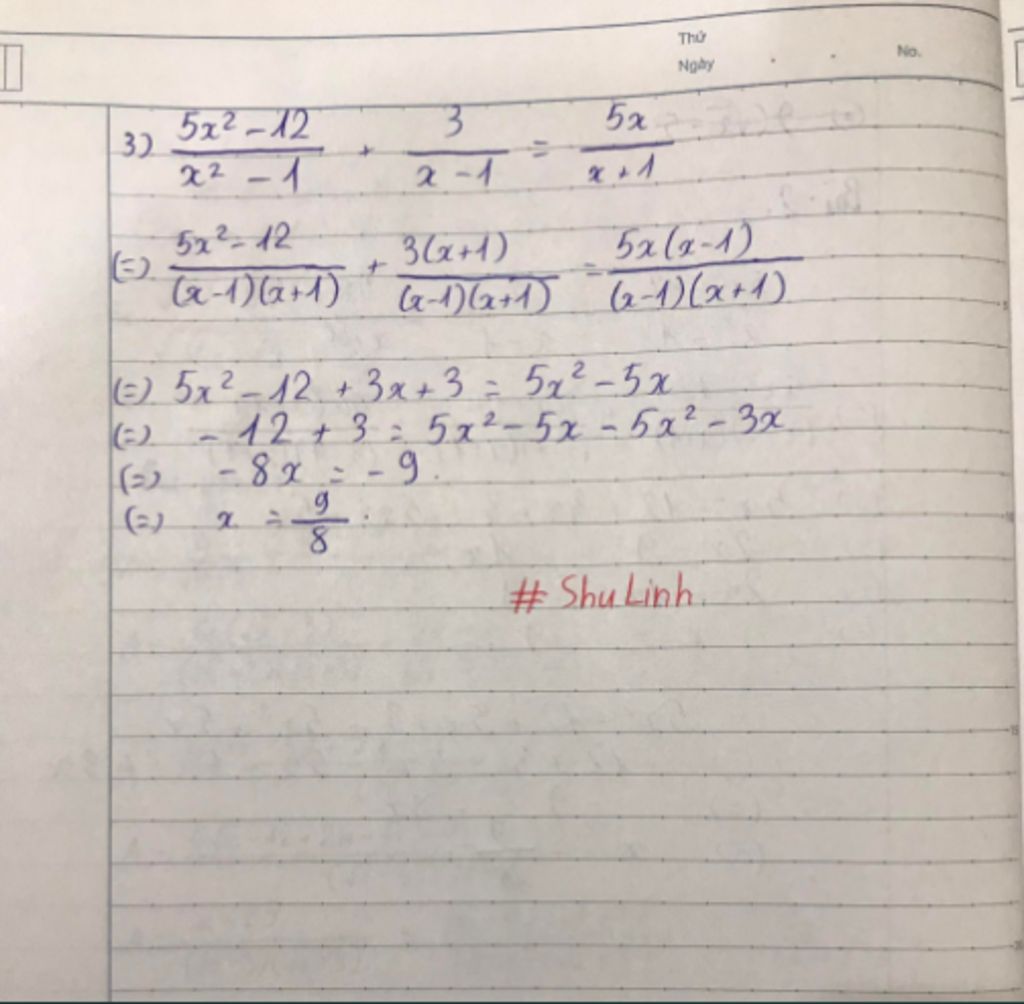 Thứ
Ngày No.
3) (5x² - 12)/(x² - 1) + 3/(x - 1) = 5x/(x + 1)
(=) (5x² - 12)/((x-1)(x+1)) + 3(x+1)/((x-1)(x+1)) = 5x(x-1)/((x-1)(x+1))
(=) 5x² - 12 + 3x + 3 = 5x² - 5x
(=) - 12 + 3 = 5x² - 5x - 5x² - 3x
(=) - 8x = - 9.
(=) x = 9/8.
# Shu Linh.